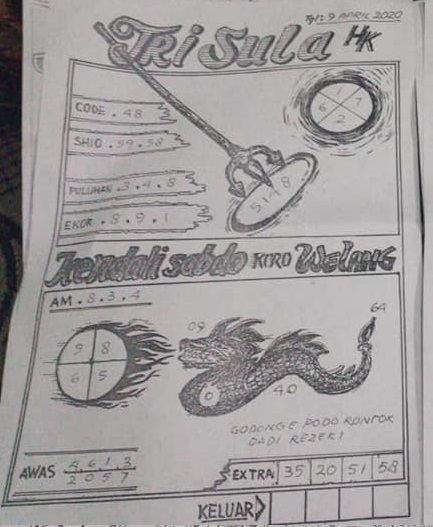 Tgl: 9 APRIL 2020
Tri Sula HK
CODE . 48
SHIO . 99.98
PULUHAN . 3.4.8
EKOR . 8.9.1
1
6 7
2
51 8
Kendali sabdo KIRO WELANG
AM . 8.3.4
9 8
6 5
09
64
0
40
GODONGE PODO RONTOK
DADI REZEKI
AWAS 4 6 1 3
2 0 5 7
EXTRA 35 20 51 58
KELUAR